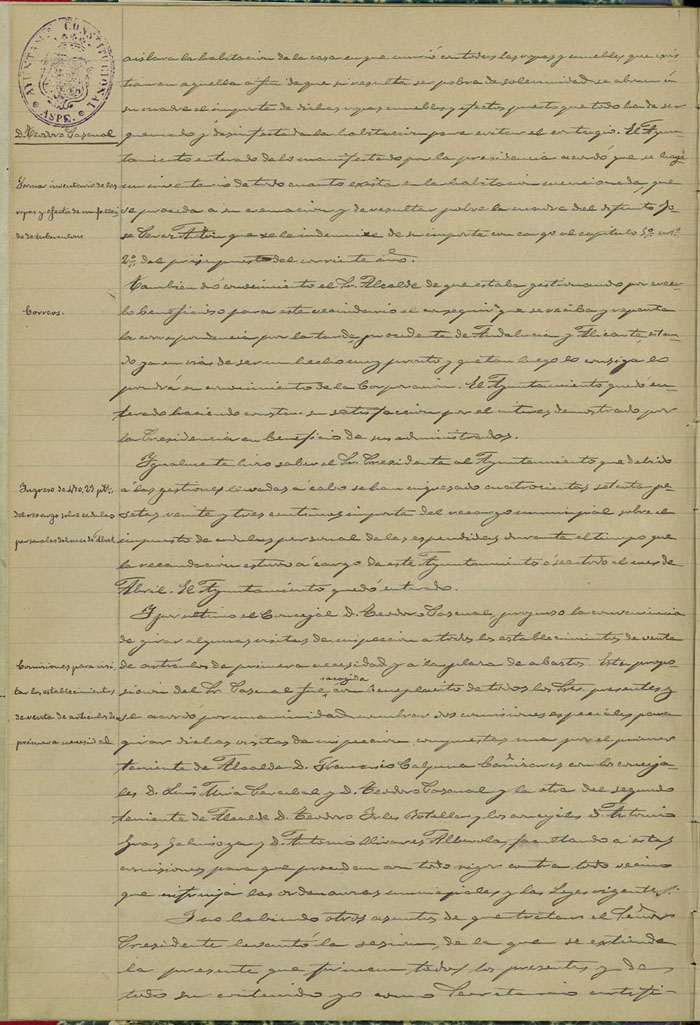 AYUNTAMTO CONSTITUCIONAL
ASPE.
D. Teodoro Pascual
Formar inventario de las
ropas y efectos de un falleci-
do de tuberculosis
Correos.
Ingreso de 470,23 ptas.
del recargo sobre cédulas
personales del mes de Abril
Comisiones para visi-
tar los establecimientos
de venta de artículos de
primera necesidad
aislara la habitacion de la casa en que murió con todas las ropas y muebles que exis-
tieran en aquella a fin de que si resulta ser pobre de solemnidad se abone á
su madre el importe de dichas ropas muebles y efectos, puesto que todo ha de ser
quemado y desinfectada la habitacion para evitar el contagio. El Ayun-
tamiento enterado de lo manifestado por la presidencia acordó que se haga
un inventario de todo cuanto exista en la habitacion mencionada que
se proceda a su cremacion y de resultar pobre la madre del difunto Jo-
sé Perez que se le indemnice de su importe con cargo al capitulo 5º artº
2º del presupuesto del corriente año.
Tambien dió conocimiento el Sr. Alcalde de que estaba gestionando por creer-
lo beneficioso para este vecindario el conseguir que se reciba y reparta
la correspondencia por la tarde, procedente de Andalucia y Alicante estan-
do ya en vias de ser un hecho muy pronto y que tan luego lo consiga lo
pondrá en conocimiento de la Corporacion. El Ayuntamiento quedó en-
terado haciendo constar su satisfaccion por el interes demostrado por
la Presidencia en beneficio de sus administrados.
Igualmente hizo saber el Sr. Presidente al Ayuntamiento que debido
á las gestiones llevadas á cabo se han ingresado cuatrocientas setenta pe-
setas veinte y tres centimos importe del recargo municipal sobre el
impuesto de cedulas personales de las expendidas durante el tiempo que
la recaudacion estuvo á cargo de este Ayuntamiento ó sea todo el mes de
Abril. El Ayuntamiento quedó enterado.
Y por ultimo el Concejal D. Teodoro Pascual, propuso la conveniencia
de girar algunas visitas de inspeccion a todos los establecimientos de venta
de articulos de primera necesidad y a la plaza de abastos. Esta propo-
sicion del Sr. Pascual fué acogida con beneplacito de todos los Sres. presentes y
se acordó por unanimidad nombrar dos comisiones especiales para
girar dichas visitas de inspeccion compuestas una por el primer
teniente de Alcalde D. Francisco Calpena Cañizares con los conceja-
les D. Luis Mira y D. Teodoro Pascual y la otra del segundo
teniente de Alcalde D. Teodoro Botella y los concejales D. Antonio
Gras Galinsoga y D. Antonio Olivares Alberola, facultando á estas
comisiones para que procedan con todo rigor contra todo vecino
que infrinja las ordenanzas municipales y las Leyes vigentes.
Y no habiendo otros asuntos de que tratar el Señor
Presidente levantó la sesion, de la que se extiende
la presente que firman todos los presentes y de
todo su contenido yo como Secretario certifi-